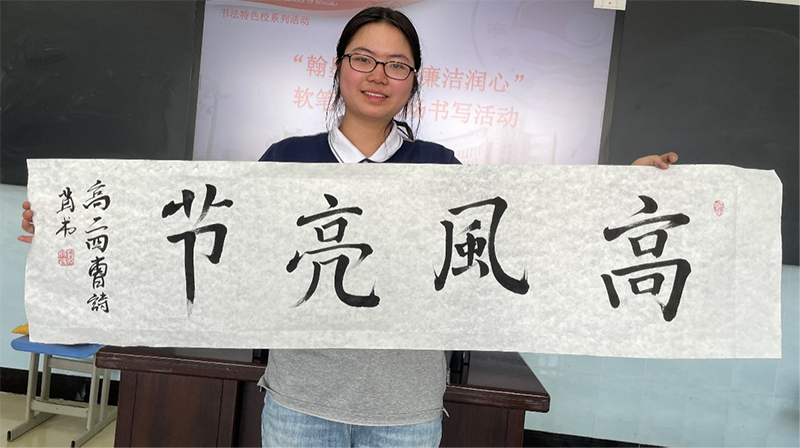 书法特色校系列活动
“翰 廉洁润心”
软笔 书写活动
高風亮节
高二四曹詩
书